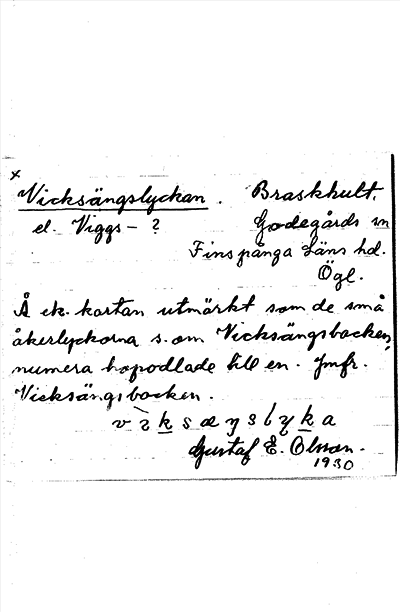 x
Vicksängslyckan. Braskhult,
el. Viggs- ? Godegårds sn
Finspånga Läns hd.
Ögl.
Å ek. kartan utmärkt som de små
åkerlyckorna s. om Vicksängsbacken,
numera hopodlade till en. Jmfr.
Vicksängsbacken.
Gustaf E. Olsson.
1930